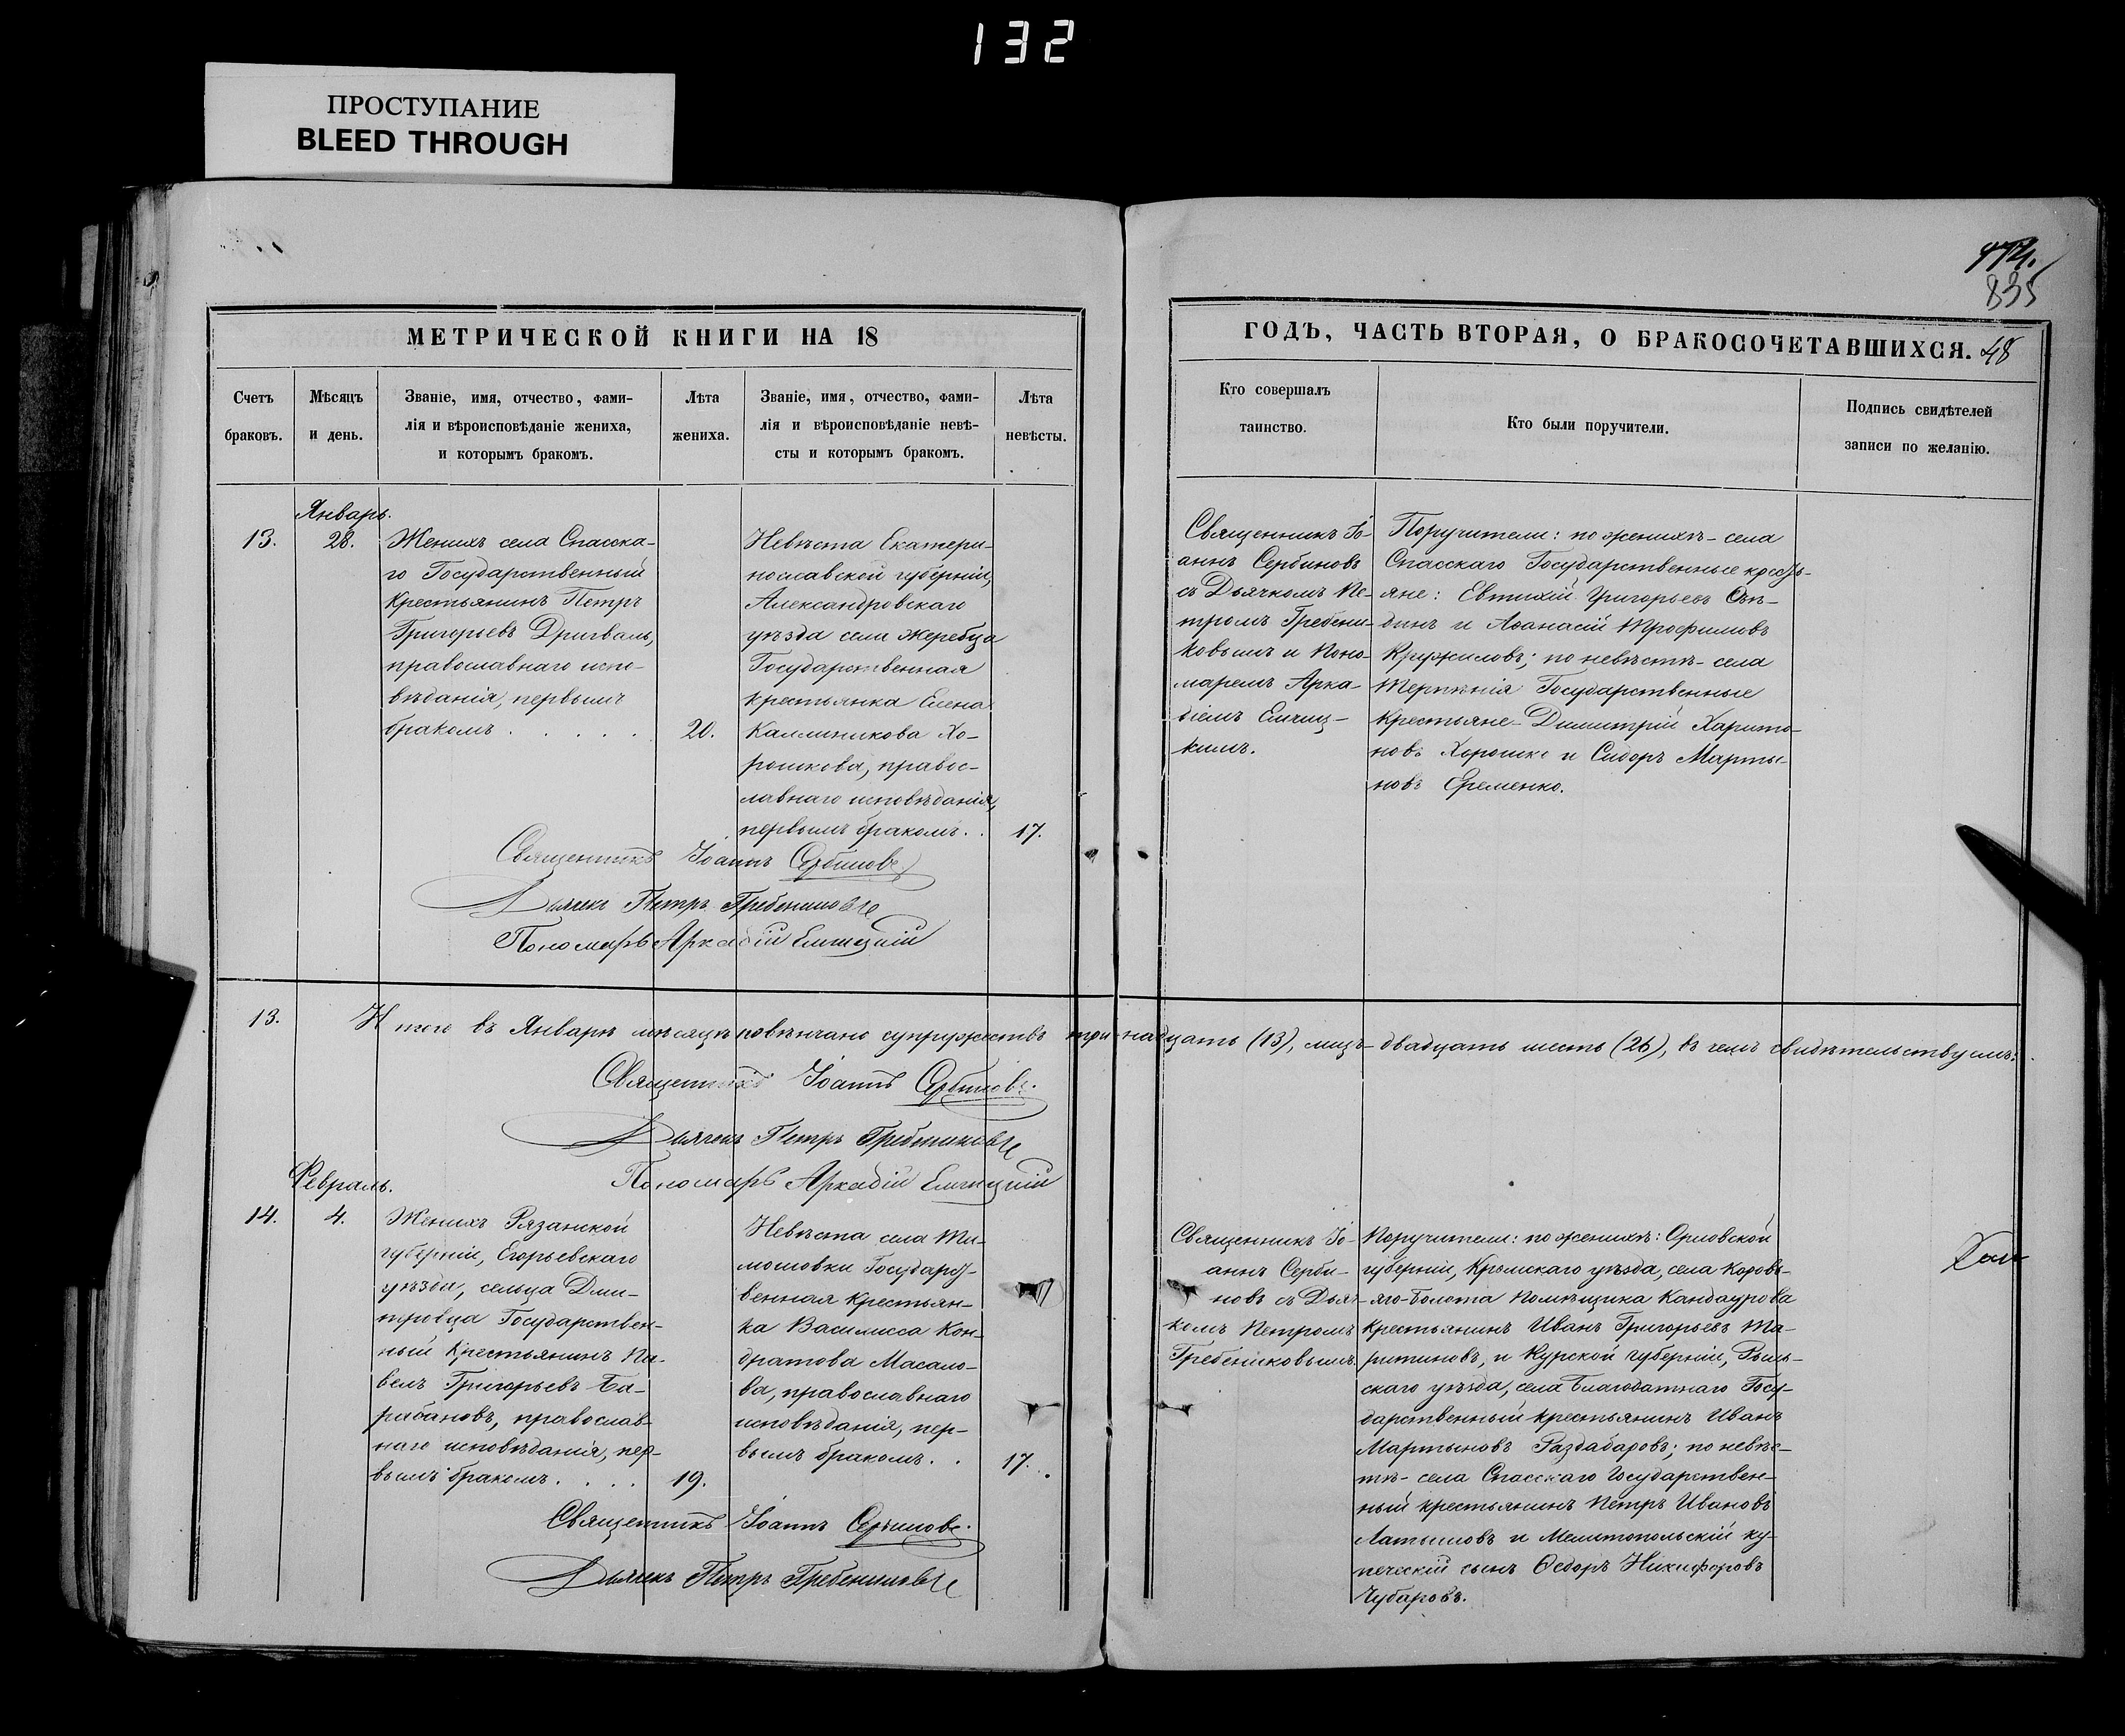 132
ПРОСТУПАНИЕ
BLEED THROUGH
835
МЕТРИЧЕСКОЙ КНИГИ НА 18
ГОДЪ, ЧАСТЬ ВТОРАЯ, О БРАКОСОЧЕТАВШИХСЯ. 48
Счетъ
браковъ.
Мѣсяцъ
и день.
Званіе, имя, отчество, фами-
лія и вѣроисповѣданіе жениха,
и которымъ бракомъ.
Лѣта
жениха.
Званіе, имя, отчество, фами-
лія и вѣроисповѣданіе невѣ-
сты и которымъ бракомъ.
Лѣта
невѣсты.
Кто совершалъ
таинство.
Кто были поручители.
Подпись свидѣтелей
записи по желанію.
Январь.
13.
28.
Женихъ села Спасска-
го Государственный
крестьянинъ Петръ
Григорьевъ Дригваль,
православнаго испо-
вѣданія, первымъ
бракомъ . . . . .
20.
Невѣста Екатери-
нославской губерніи,
Александровскаго
уѣзда села Жеребца
Государственная
крестьянка Елена
Каллиникова Хо-
рошкова, правос-
лавнаго исповѣданія,
первымъ бракомъ. .
17.
Священникъ Іо-
аннъ Сербиновъ
съ Дьячкомъ Пе-
тромъ Гребени-
ковымъ и Поно-
маремъ Арка-
діемъ
Поручители: по женихѣ - села
Спасскаго Государственные кресть-
яне: Евтихій Григорьевъ
и Аѳанасій Трофимовъ
Кружиловъ; по невѣстѣ - села
Терпѣнія Государственные
крестьяне - Димитрій Харито-
новъ Хорошко и Сидоръ Марты-
новъ Еременко.
Священникъ Іоаннъ Сербиновъ
Дьячекъ Петръ Гребениковъ
Пономарь Аркадій
13.
Итого въ Январѣ мѣсяцѣ повѣнчано супружествъ три-надцать (13), лицъ - двадцать шесть (26), въ чемъ свидѣтельствуемъ:
Священникъ Іоаннъ Сербиновъ.
Дьячекъ Петръ Гребениковъ
Пономарь Аркадій
Февраль.
14.
4.
Женихъ Рязанской
губерніи, Егорьевскаго
уѣзда, сельца Дми-
тровца Государствен-
ный крестьянинъ Па-
велъ Григорьевъ Ба-
рабановъ, православ-
наго исповѣданія, пер-
вымъ бракомъ. . . .
19.
Невѣста села Ти-
мошовки Государст-
венная крестьян-
ка Василисса Кон-
дратова Масало-
ва, православнаго
исповѣданія, пер-
вымъ бракомъ. .
17.
Священникъ Іо-
аннъ Серби-
новъ съ Дьяч-
комъ Петромъ
Гребениковымъ.
Поручители: по женихѣ: Орловской
губерніи, Кромскаго уѣзда, села Коровь-
яго-Болота помѣщика Кандаурова
крестьянинъ Иванъ Григорьевъ
и Курской губерніи, Рыль-
скаго уѣзда, села Благодатнаго Госу-
дарственный крестьянинъ Иванъ
Мартыновъ Раздабаровъ; по невѣс-
тѣ - села Спасскаго Государствен-
ный крестьянинъ Петръ Ивановъ
Латышовъ и Мелитопольскій ку-
печескій сынъ Ѳедоръ Никифоровъ
Чубаровъ.
Священникъ Іоаннъ Сербиновъ.
Дьячекъ Петръ Гребениковъ